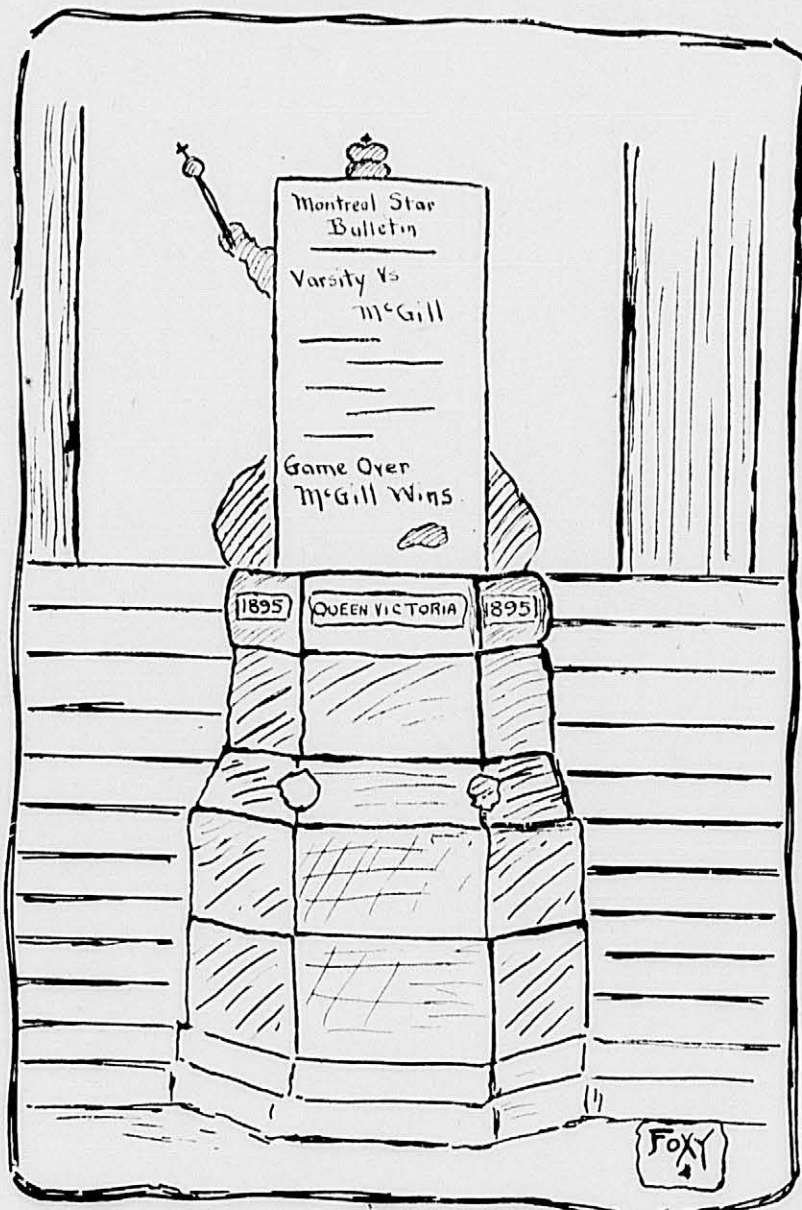 Montreal Star
Bulletin
Varsity Vs
McGill
Game Over
McGill Wins
1895 QUEEN VICTORIA 1895
FOXY